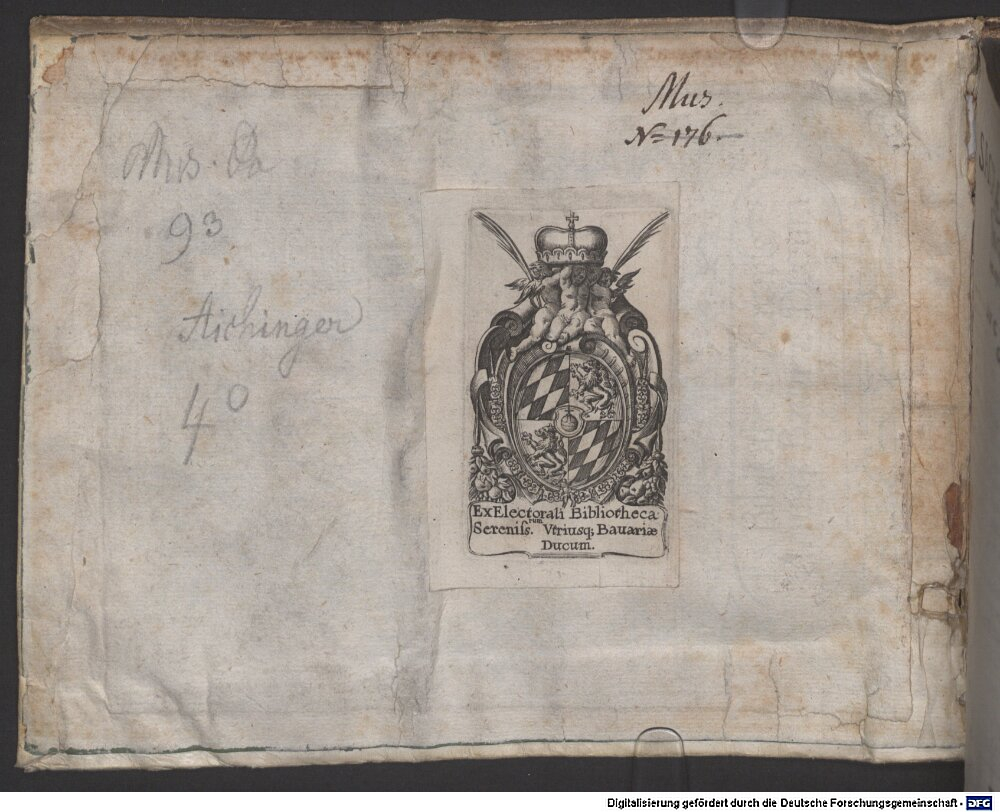 Mus.
N= 176.
Mus.
93
Aichinger
4°
Ex Electorali Bibliotheca
Sereniſs.rum Vtriusq; Bauariæ
Ducum.
Digitalisierung gefördert durch die Deutsche Forschungsgemeinschaft - DFG